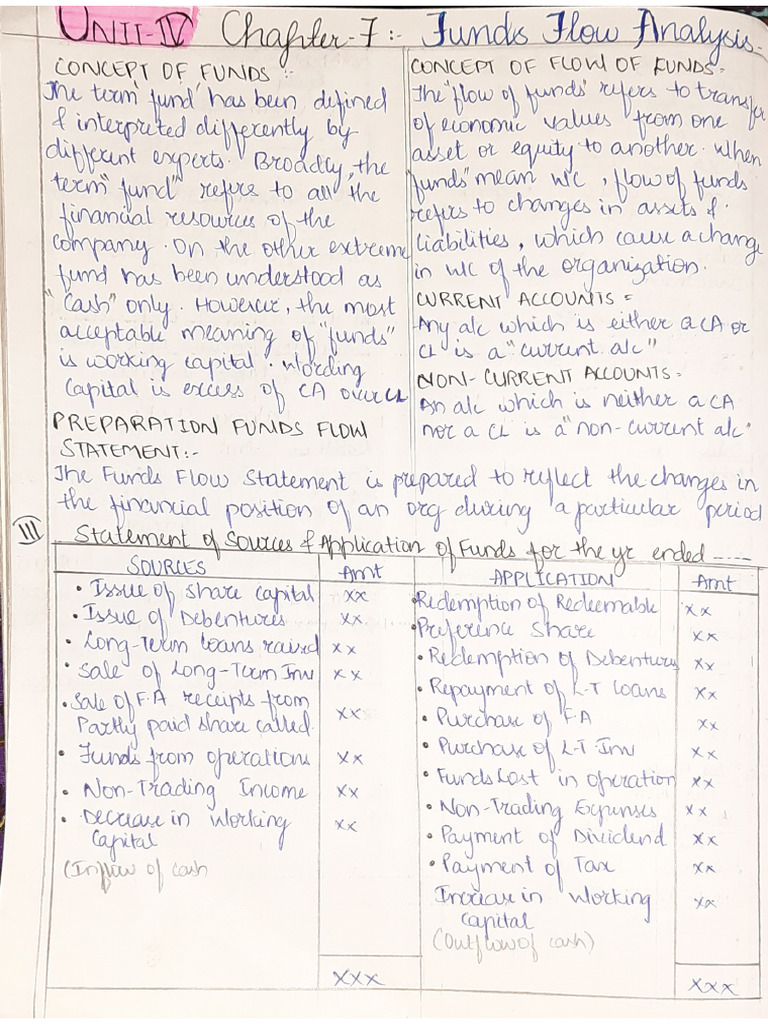 UNIT-IV Chapter-7:- Funds Flow Analysis.
CONCEPT OF FUNDS:-
The term 'fund' has been defined
& interpreted differently by
different experts. Broadly, the
term "fund" refers to all the
financial resources of the
company. On the other extreme
fund has been understood as
"Cash" only. However, the most
acceptable meaning of "funds"
is working capital. Wording
Capital is excess of CA over CL
CONCEPT OF FLOW OF FUNDS-
The "flow of funds" refers to transfer
of economic values from one
asset or equity to another. When
"funds" mean w/c, flow of funds
refers to changes in assets &
liabilities, which cause a change
in w/c of the organization.
CURRENT ACCOUNTS =
Any a/c which is either a CA or
CL is a "current a/c"
NON-CURRENT ACCOUNTS-
An a/c which is neither a CA
nor a CL is a "non-current a/c"
PREPARATION FUNDS FLOW
STATEMENT:-
The Funds Flow Statement is prepared to reflect the changes in
the financial position of an org during a particular period
III Statement of Sources & Application of Funds for the yr ended -----
SOURCES Amt APPLICATION Amt
• Issue of share capital xx
• Issue of Debentures xx
• Long-Term loans raised xx
• Sale of Long-Term Inv xx
• Sale of F.A receipts from
Partly paid share called. xx
• Funds from operations xx
• Non-Trading Income xx
• Decrease in Working xx
Capital
(Inflow of cash
xxx
• Redemption of Redeemable xx
• Preference Share xx
• Redemption of Debenture xx
• Repayment of L-T loans xx
• Purchase of F.A xx
• Purchase of L-T Inv xx
• Funds Lost in operation xx
• Non-Trading Expenses xx
• Payment of Dividend xx
• Payment of Tax xx
Increase in Working xx
Capital
(Outflow of cash)
xxx